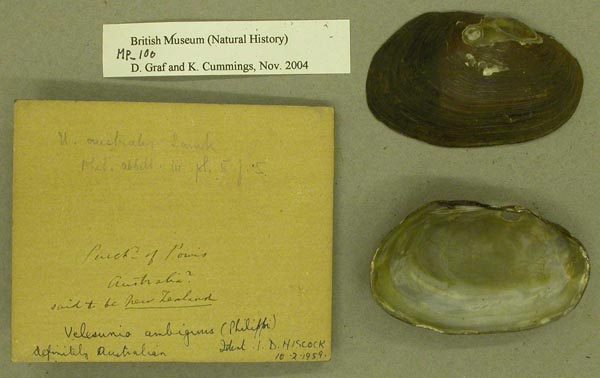 British Museum (Natural History)
MP_100
D. Graf and K. Cummings, Nov. 2004
U. australis Lamk
pl. 5 f. 5
of Powis
Australia?
said to be New Zealand
Velesunio ambiguus (Philippi)
definitely Australian Ident. I. D. HISCOCK
10.2.1959.